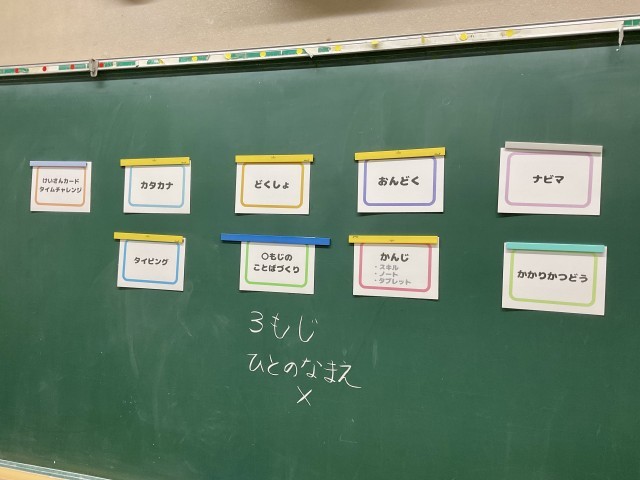 けいさんカード
タイムチャレンジ
カタカナ
どくしょ
おんどく
ナビマ
タイピング
〇もじの
ことばづくり
かんじ
・スキル
・ノート
・タブレット
かかりかつどう
3もじ
ひとのなまえ
×